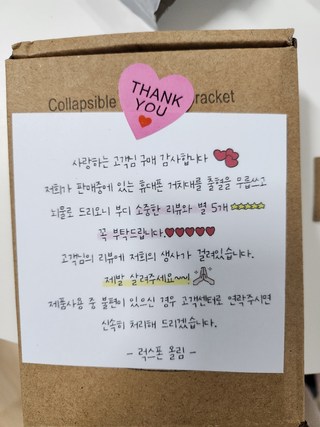 THANK
YOU
Collapsible
racket
사랑하는 고객님 구매 감사합니다
저희가 판매중에 있는 휴대폰 거치대를 출혈을 무릅쓰고
뇌물로 드리오니 부디 소중한 리뷰와 별 5개 ★★★★★
꼭 부탁드립니다.♥♥♥♥♥
고객님의 리뷰에 저희의 생사가 걸려있습니다.
제발 살려주세요~~!
제품사용 중 불편이 있으신 경우 고객센터로 연락주시면
신속히 처리해 드리겠습니다.
- 럭스폰 올림 -